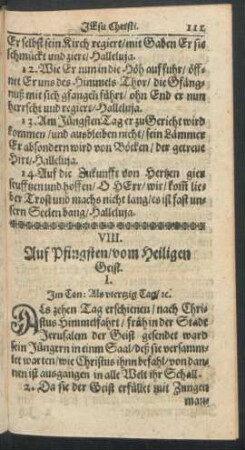 JEsu Christi. 111
Er selbst sein Kirch regiert/mit Gaben Er sie
schmückt und ziert/Halleluja.
12. Wie Er nun in die Höh auffuhr/ öff-
net Er uns des Himmels-Thor/ die Gfäng-
nuß mit sich gfangen führt/ ohn End er nun
herrscht und regiert/Halleluja.
13. Am JüngstenTag er zu Gericht wird
kommen/und ausbleiben nicht/ sein Lämmer
Er absondern wird von Böcken/ der getreue
Hirt/Halleluja.
14. Auf die Zukunfft von Hertzen gier
seufftzen und hoffen/ O HErr/wir/ kom̃ lie-
ber Trost und machs nicht lang/es ist fast un-
sern Seelen bang/Halleluja.
VIII.
Auf Pfingsten/vom Heiligen
Geist.
I.
Im Ton: Als viertzig Tag/ ꝛc.
ALs zehen Tag erschienen/nach Chri-
stus Himmelfahrt/ früh in der Stadt
Jerusalem der Geist gesendet ward
sein Jüngern in einm Saal/deß sie versamm-
let warten/wie Christus ihnn befahl/von dan-
nen ist ausgangen in alle Welt ihr Schall.
2. Da sie der Geist erfüllet mit Zungen
man-